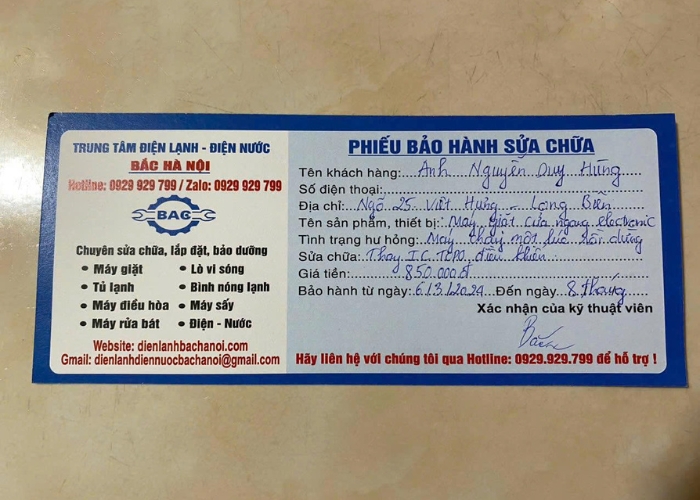 TRUNG TÂM ĐIỆN LẠNH - ĐIỆN NƯỚC
BẮC HÀ NỘI
Hotline: 0929 929 799 / Zalo: 0929 929 799
BAC
Chuyên sửa chữa, lắp đặt, bảo dưỡng
• Máy giặt • Lò vi sóng
• Tủ lạnh • Bình nóng lạnh
• Máy điều hòa • Máy sấy
• Máy rửa bát • Điện - Nước
Website: dienlanhbachanoi.com
Gmail: dienlanhdiennuocbachanoi@gmail.com
PHIẾU BẢO HÀNH SỬA CHỮA
Tên khách hàng: Anh Nguyễn Duy Hưng
Số điện thoại:
Địa chỉ: Ngõ 25 Việt Hưng - Long Biên
Tên sản phẩm, thiết bị: Máy giặt cửa ngang electronic
Tình trạng hư hỏng: Máy chạy một lúc rồi dừng
Sửa chữa: Thay I.C. điều khiển
Giá tiền: 850.000đ
Bảo hành từ ngày: 6/3/2024 Đến ngày 8 tháng
Xác nhận của kỹ thuật viên
Hãy liên hệ với chúng tôi qua Hotline: 0929.929.799 để hỗ trợ !